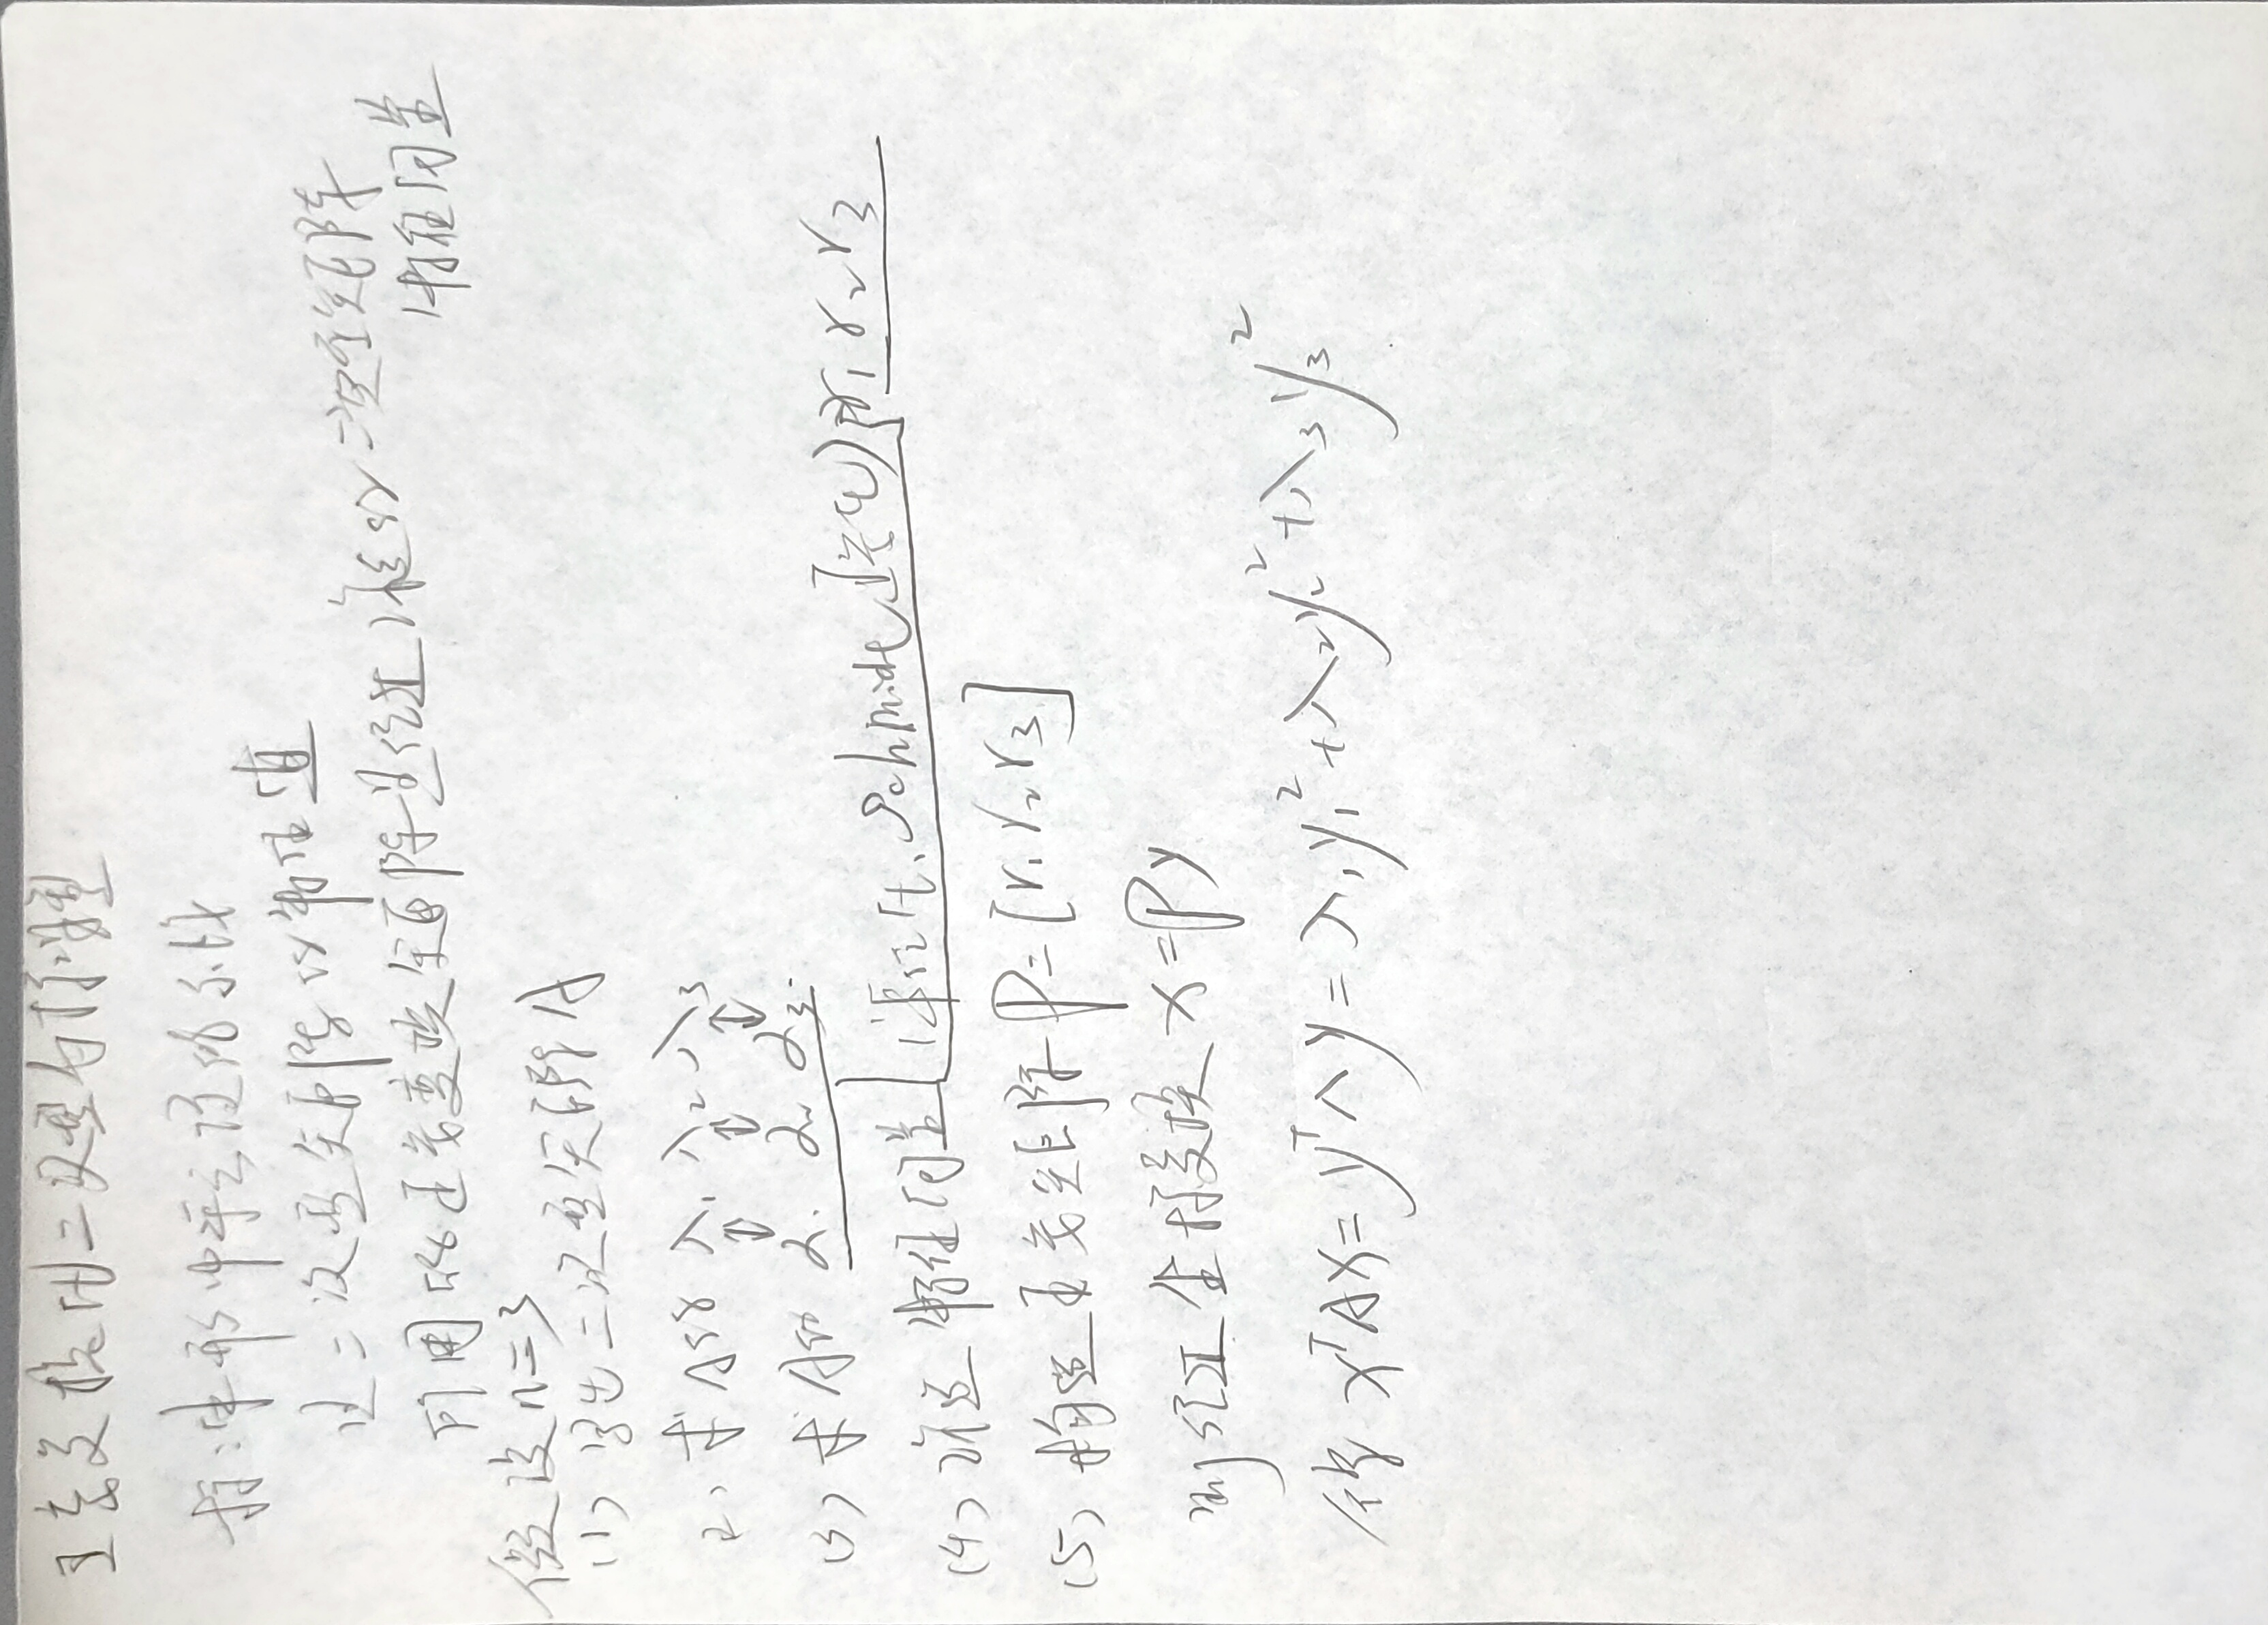 正交变换化二次型为标准型
标准形中平方项的系数
是二次型矩阵的特征值
所用的正交变换矩阵是经过改造的二次型矩阵
特征向量
假设n=3
(1) 写出二次型矩阵A
2, 求A的 λ₁ λ₂ λ₃
(3) 求A的 α₁ α₂ α₃.
(4) 改造特征向量 (单位化, Schmidt正交化) γ₁ γ₂ γ₃
(5) 构造正交矩阵 P=[γ₁ γ₂ γ₃]
则经过坐标变换 x=Py
得 xᵀAx=yᵀΛy=λ₁y₁²+λ₂y₂²+λ₃y₃²